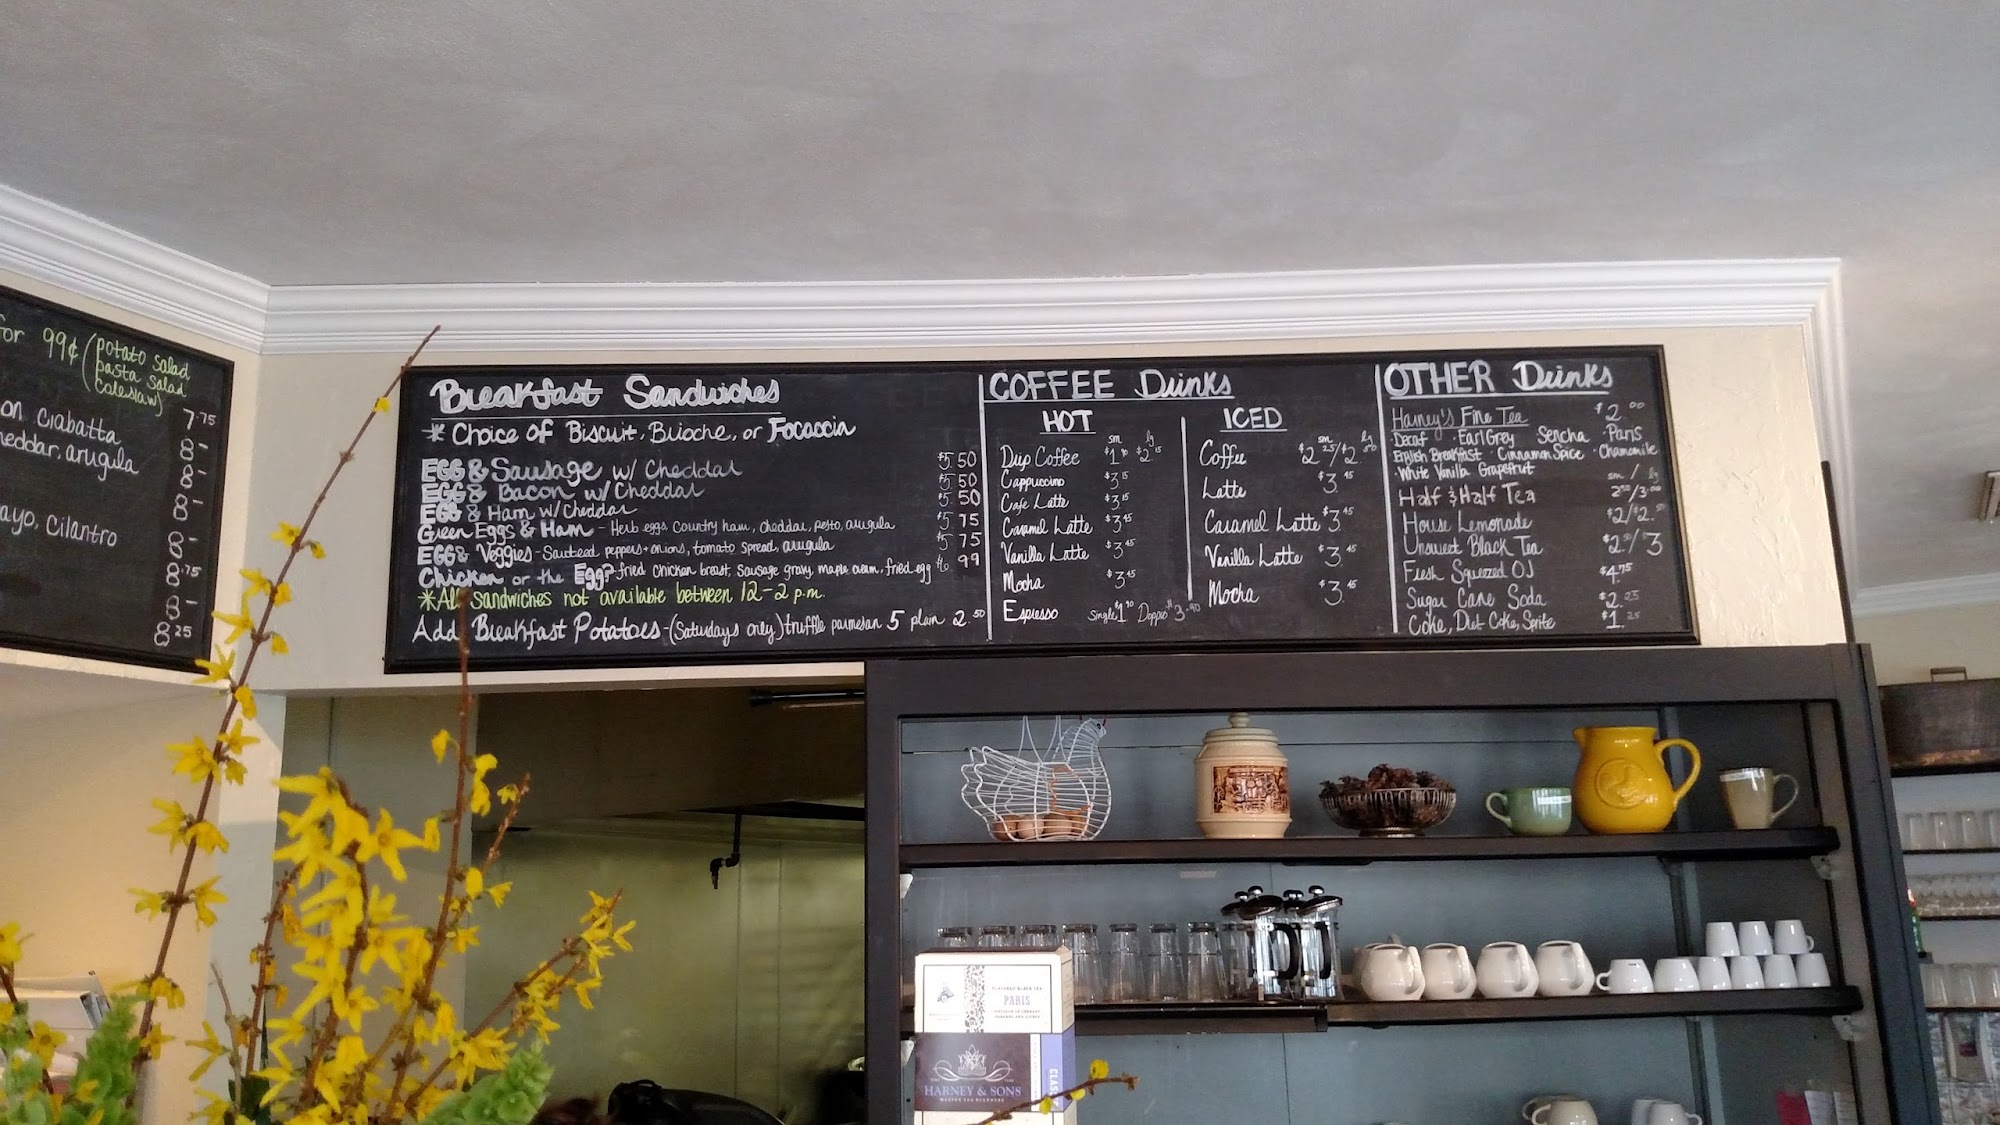 for 99¢ (potato salad
pasta salad
coleslaw)
7.75
on ciabatta 8-
heddar, arugula 8-
8-
ayo, Cilantro 8-
8.75
8-
8.25
Breakfast Sandwiches
* Choice of Biscuit, Brioche, or Focaccia
EGG & Sausage w/ Cheddar $5.50
EGG & Bacon w/ Cheddar $5.50
EGG & Ham w/ Cheddar $5.50
Green Eggs & Ham - Herb eggs, Country ham, cheddar, pesto, arugula $5.75
EGG & Veggies - Sauteed peppers + onions, tomato spread, arugula $5.75
Chicken or the Egg? - fried chicken breast, sausage gravy, maple cream, fried egg $6.99
*All sandwiches not available between 12-2 p.m.
Add Breakfast Potatoes - (Saturdays only) truffle parmesan 5 plain 2.50
COFFEE Drinks
HOT
sm lg
Drip Coffee $1.90 $2.15
Cappuccino $3.15
Cafe Latte $3.15
Caramel Latte $3.45
Vanilla Latte $3.45
Mocha $3.45
Espresso Single $1.90 Doppio $3.90
ICED
sm lg
Coffee $2.25/$2.50
Latte $3.45
Caramel Latte $3.45
Vanilla Latte $3.45
Mocha $3.45
OTHER Drinks
Harney's Fine Tea $2.00
Decaf · Earl Grey Sencha · Paris
English Breakfast · Cinnamon Spice · Chamomile
· White Vanilla Grapefruit
sm / lg
Half & Half Tea 2.50/3.00
House Lemonade $2/$2.50
Unsweet Black Tea $2.50/$3
Fresh Squeezed OJ $4.75
Sugar Cane Soda $2.25
Coke, Diet Coke, Sprite $1.25
FLAVORED BLACK TEA
PARIS
HARNEY & SONS
MASTER TEA BLENDERS